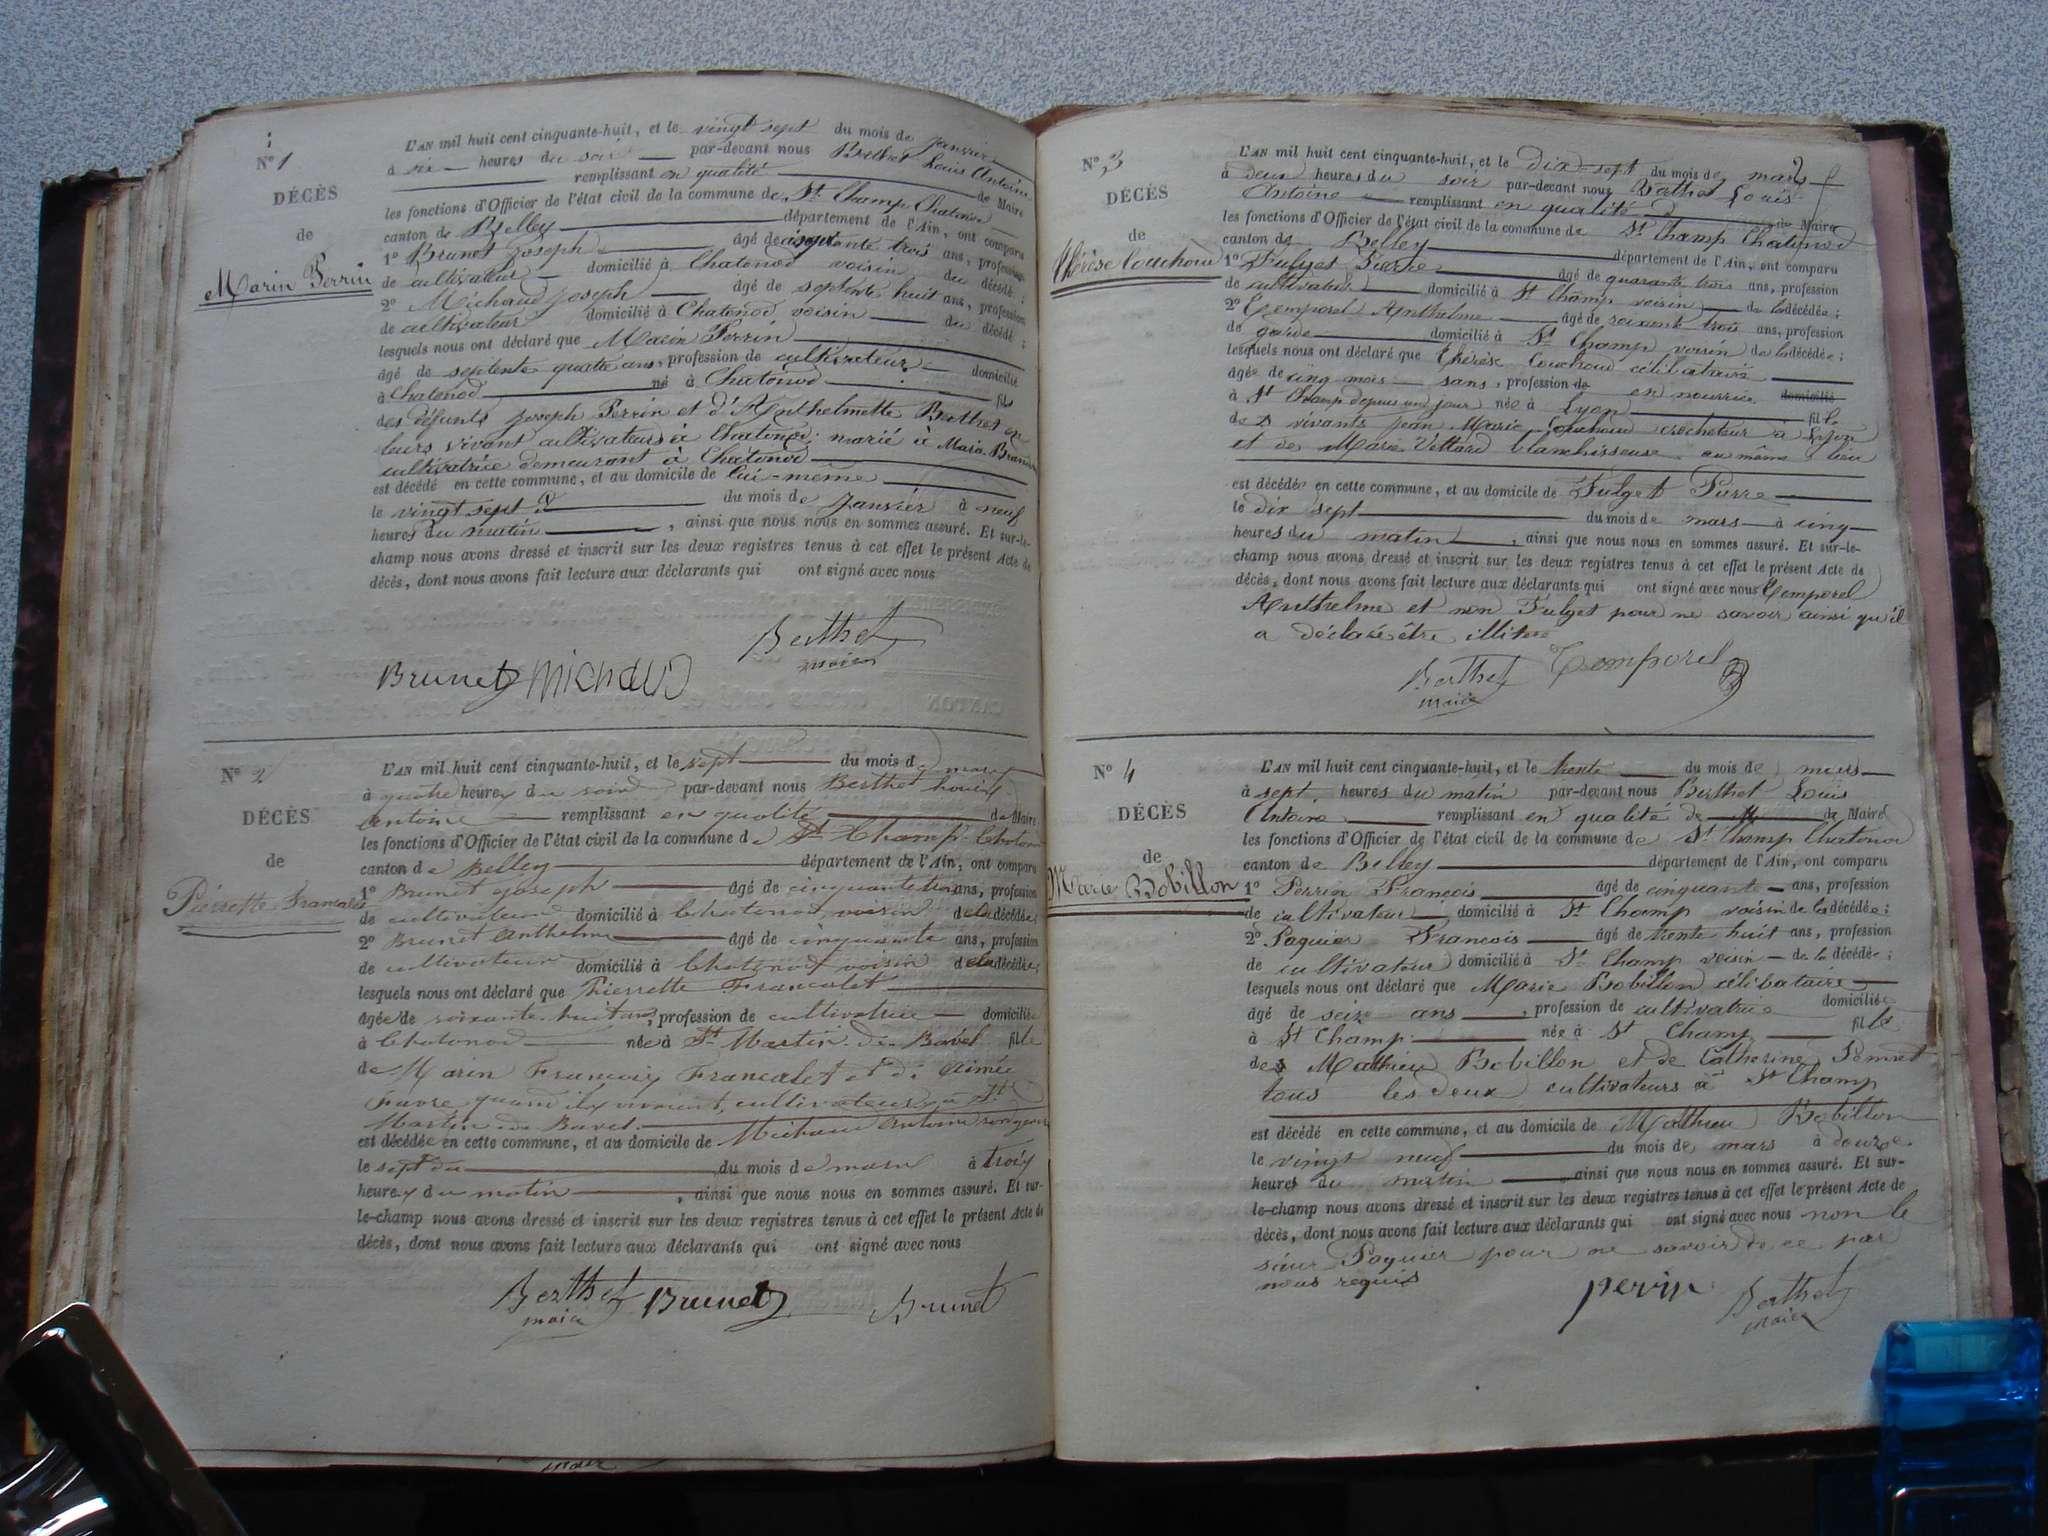 N° 1
DÉCÈS
de
Marin Perrin
L'AN mil huit cent cinquante-huit, et le vingt sept du mois de janvier
à six heures du soir par-devant nous Berthet Louis Antoine
remplissant en qualité de Maire
les fonctions d'Officier de l'état civil de la commune de St Champ Chatonod
canton de Belley département de l'Ain, ont comparu
1° Brunet Joseph âgé de trois ans, profession
de cultivateur domicilié à Chatonod voisin du décédé ;
2° Michaud Joseph âgé de septente huit ans, profession
de cultivateur domicilié à Chatonod voisin du décédé ;
lesquels nous ont déclaré que Marin Perrin
âgé de septente quatre ans, profession de cultivateur domicilié
à Chatonod né à Chatonod fils
des défunts Joseph Perrin et d'Anthelmette Berthet en
leurs vivant cultivateurs à Chatonod marié à Marie
cultivatrice demeurant à Chatonod
est décédé en cette commune, et au domicile de lui-même
le vingt sept du mois de Janvier à neuf
heures du matin , ainsi que nous nous en sommes assuré. Et sur-le-
champ nous avons dressé et inscrit sur les deux registres tenus à cet effet le présent Acte de
décès, dont nous avons fait lecture aux déclarants qui ont signé avec nous
Berthet
maire
Brunet Michaud
N° 2
DÉCÈS
de
Pierrette Francalet
L'AN mil huit cent cinquante-huit, et le sept du mois de mars
à quatre heures du soir par-devant nous Berthet Louis
Antoine remplissant en qualité de Maire
les fonctions d'Officier de l'état civil de la commune de St Champ Chatonod
canton de Belley département de l'Ain, ont comparu
1° Brunet Joseph âgé de cinquante trois ans, profession
de cultivateur domicilié à Chatonod voisin de la décédée
2° Brunet Anthelme âgé de cinquante ans, profession
de cultivateur domicilié à Chatonod voisin de la décédée
lesquels nous ont déclaré que Pierrette Francalet
âgée de soixante huit ans, profession de cultivatrice domiciliée
à Chatonod née à St Martin de Bavel fille
de Marin François Francalet et de Aimée
Favre quand ils vivaient, cultivateurs à St
Martin de Bavel.
est décédée en cette commune, et au domicile de Michaud Antoine
le sept du du mois de mars à trois
heures du matin , ainsi que nous nous en sommes assuré. Et sur-
le-champ nous avons dressé et inscrit sur les deux registres tenus à cet effet le présent Acte de
décès, dont nous avons fait lecture aux déclarants qui ont signé avec nous
Berthet Brunet Brunet
maire
N° 3
DÉCÈS
de
Thérèse Couchoud
2
L'AN mil huit cent cinquante-huit, et le dix sept du mois de mars
à deux heures du soir par-devant nous Berthet Louis
Antoine remplissant en qualité de Maire
les fonctions d'Officier de l'état civil de la commune de St Champ Chatonod
canton de Belley département de l'Ain, ont comparu
1° Fulget Pierre âgé de quarante trois ans, profession
de cultivateur domicilié à St Champ voisin de la décédée ;
2° Temporel Anthelme âgé de soixante trois ans, profession
de garde domicilié à St Champ voisin de la décédée ;
lesquels nous ont déclaré que Thérèse Couchoud célibataire
âgée de cinq mois sans, profession de en nourrice domicilié
à St Champ depuis un jour née à Lyon fille
de vivants Jean Marie Couchoud crocheteur à Lyon
et de Marie Vettard blanchisseuse au même lieu
est décédée en cette commune, et au domicile de Fulget Pierre
le dix sept du mois de mars à cinq
heures du matin , ainsi que nous nous en sommes assuré. Et sur-le-
champ nous avons dressé et inscrit sur les deux registres tenus à cet effet le présent Acte de
décès, dont nous avons fait lecture aux déclarants qui ont signé avec nous Temporel
Anthelme et non Fulget pour ne savoir ainsi qu'il
a déclaré être illitéré
Berthet Temporel
maire
N° 4
DÉCÈS
de
Marie Bobillon
L'AN mil huit cent cinquante-huit, et le trente du mois de mars
à sept heures du matin par-devant nous Berthet Louis
Antoine remplissant en qualité de de Maire
les fonctions d'Officier de l'état civil de la commune de St Champ Chatonod
canton de Belley département de l'Ain, ont comparu
1° Perrin François âgé de cinquante ans, profession
de cultivateur domicilié à St Champ voisin de la décédée ;
2° Paquier François âgé de trente huit ans, profession
de cultivateur domicilié à St Champ voisin de la décédée ;
lesquels nous ont déclaré que Marie Bobillon célibataire
âgé de seize ans , profession de cultivatrice domiciliée
à St Champ née à St Champ fille
de Mathieu Bobillon et de Catherine
tous les deux cultivateurs à St Champ
est décédé en cette commune, et au domicile de Mathieu Bobillon
le vingt neuf du mois de mars à douze
heures du matin ainsi que nous nous en sommes assuré. Et sur-
le-champ nous avons dressé et inscrit sur les deux registres tenus à cet effet le présent Acte de
décès, dont nous avons fait lecture aux déclarants qui ont signé avec nous non le
sieur Paquier pour ne savoir de ce par
nous requis
perrin Berthet
maire